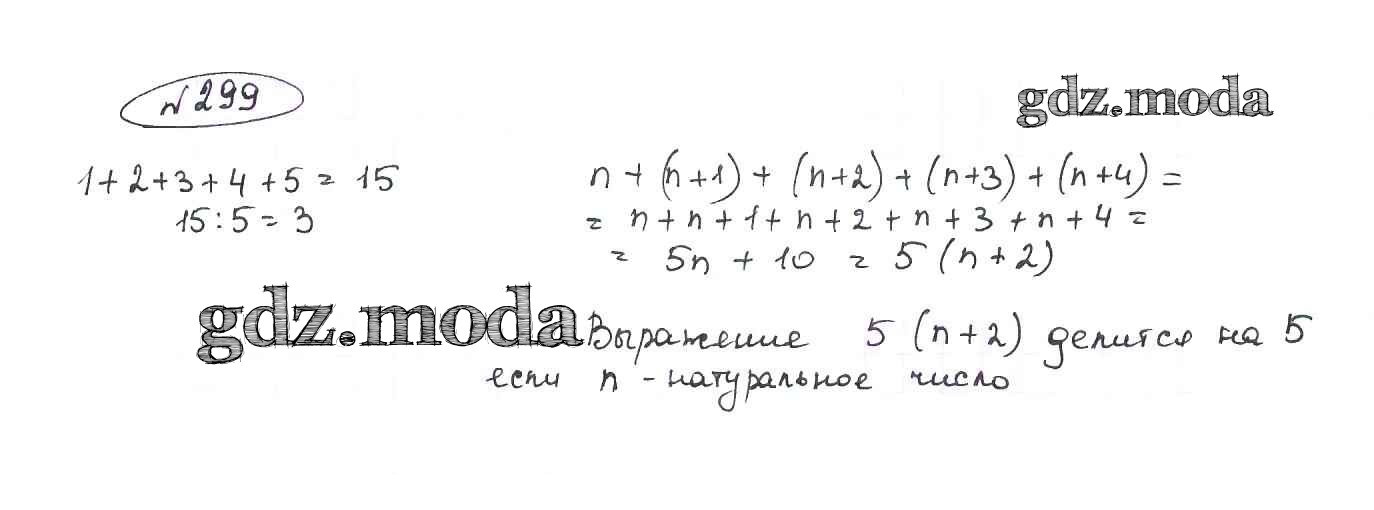 № 299
gdz.moda
1 + 2 + 3 + 4 + 5 = 15
15 : 5 = 3
n + (n+1) + (n+2) + (n+3) + (n+4) =
= n + n + 1 + n + 2 + n + 3 + n + 4 =
= 5n + 10 = 5 (n+2)
gdz.moda
Выражение 5 (n+2) делится на 5
если n - натуральное число